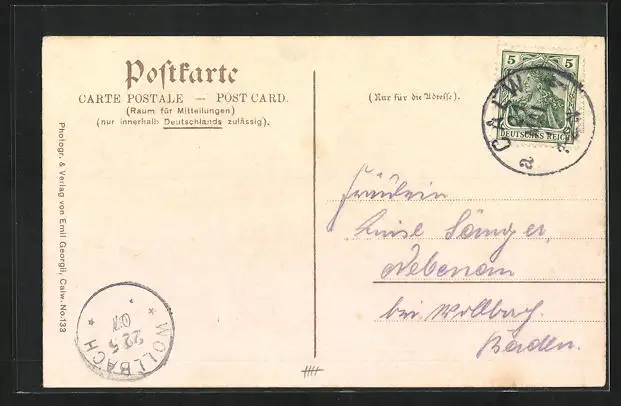 Postkarte
CARTE POSTALE — POST CARD.
(Raum für Mitteilungen)
(nur innerhalb Deutschlands zulässig).
(Nur für die Adresse).
5 5
DEUTSCHES REICH
CALW
Fräulein
Luise
Nebenau
bei Wollbach.
Baden.
Photogr. & Verlag von Emil Georgii, Calw. No. 133
* WOLLBACH *
22 5
07